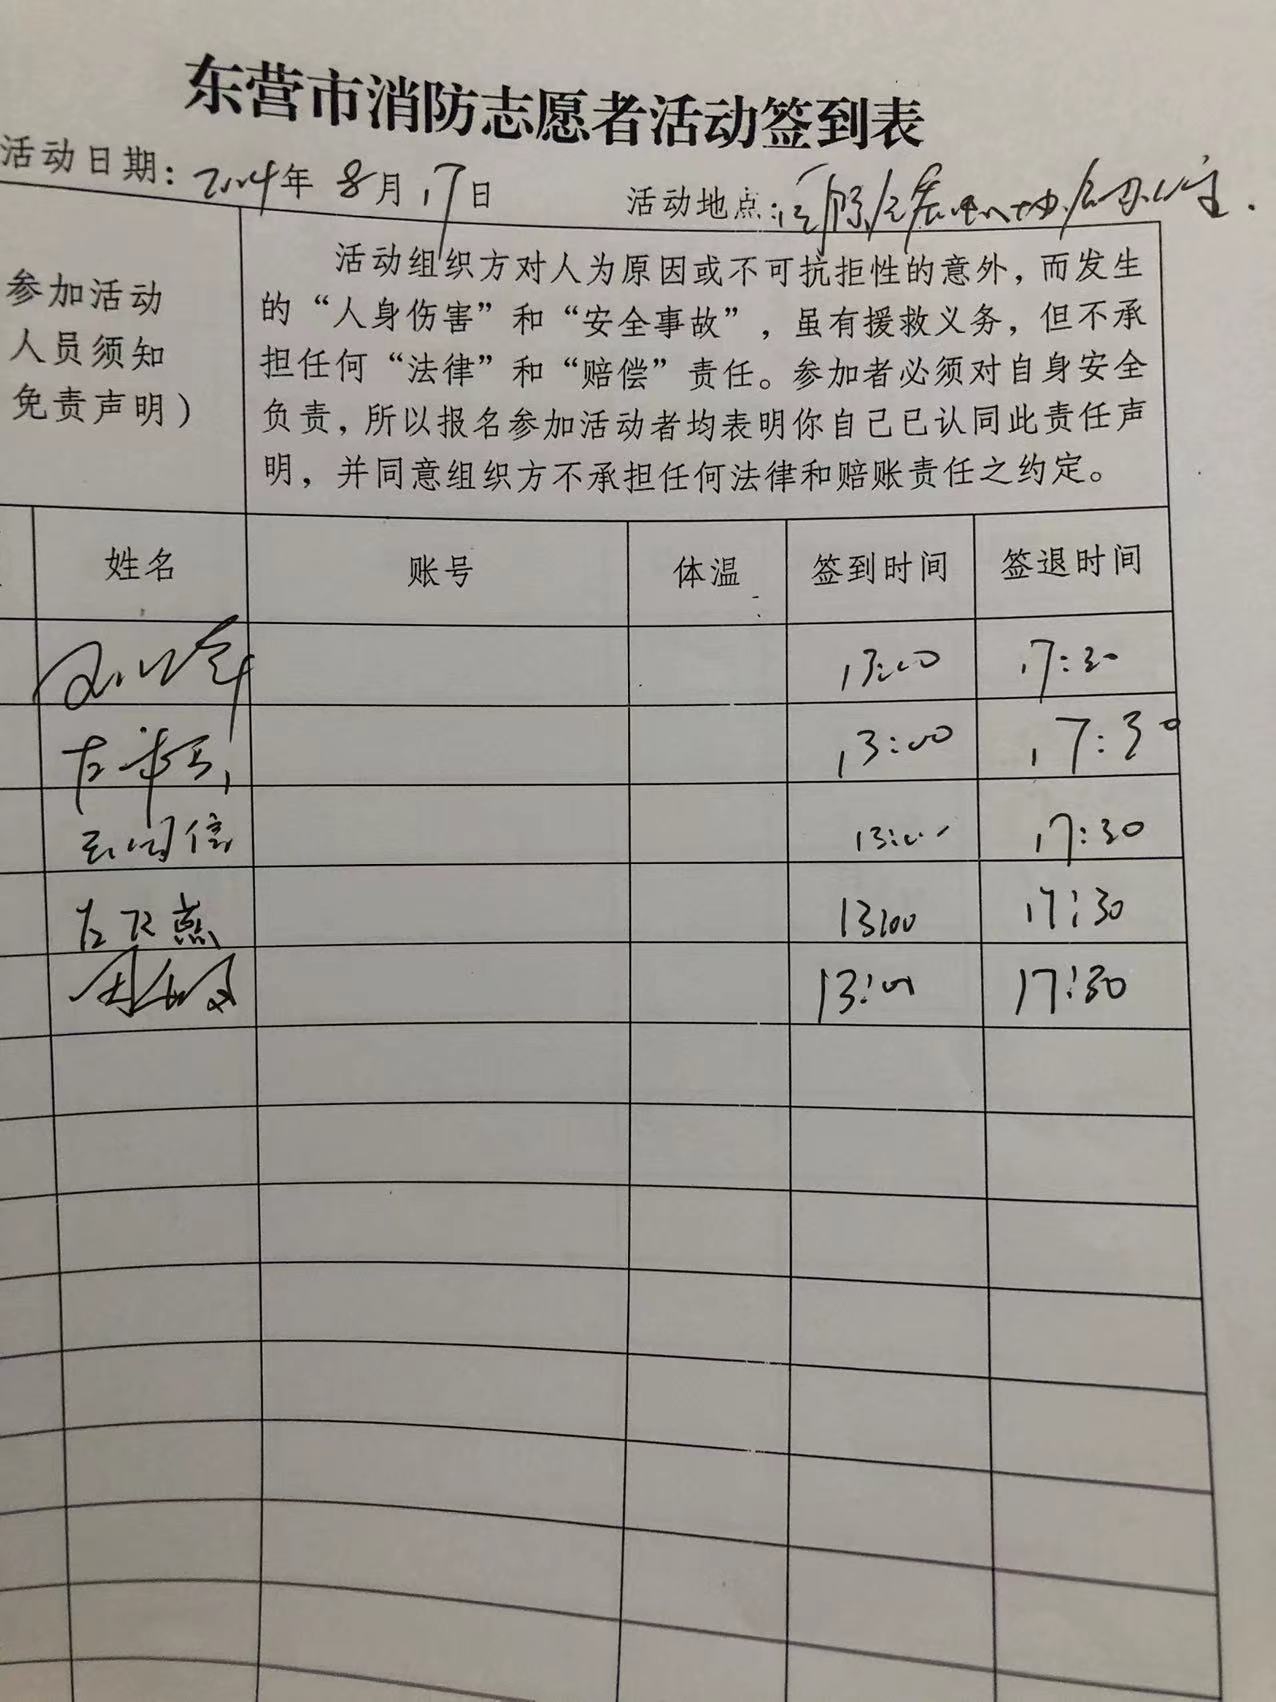 东营市消防志愿者活动签到表
活动日期：2024年 8月17日 活动地点：
参加活动
人员须知
免责声明）
活动组织方对人为原因或不可抗拒性的意外，而发生
的“人身伤害”和“安全事故”，虽有援救义务，但不承
担任何“法律”和“赔偿”责任。参加者必须对自身安全
负责，所以报名参加活动者均表明你自己已认同此责任声
明，并同意组织方不承担任何法律和赔账责任之约定。
姓名 账号 体温 签到时间 签退时间
13:00 17:30
13:00 17:30
13:00 17:30
13:00 17:30
13:00 17:30